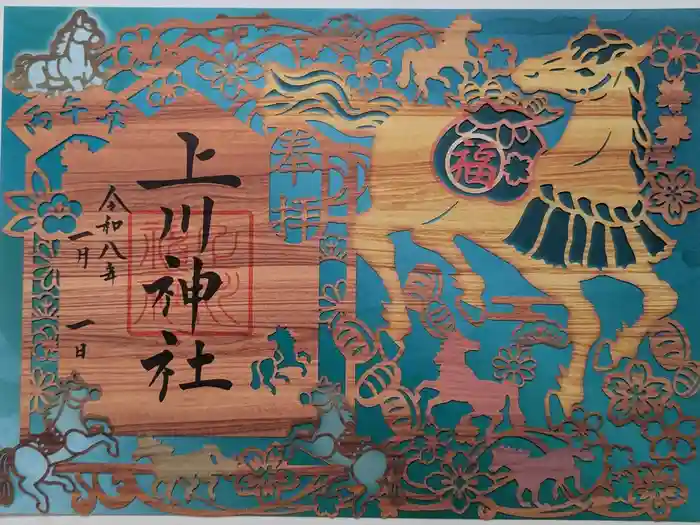 奉拝
福
上川神社
令和八年
一月 一日